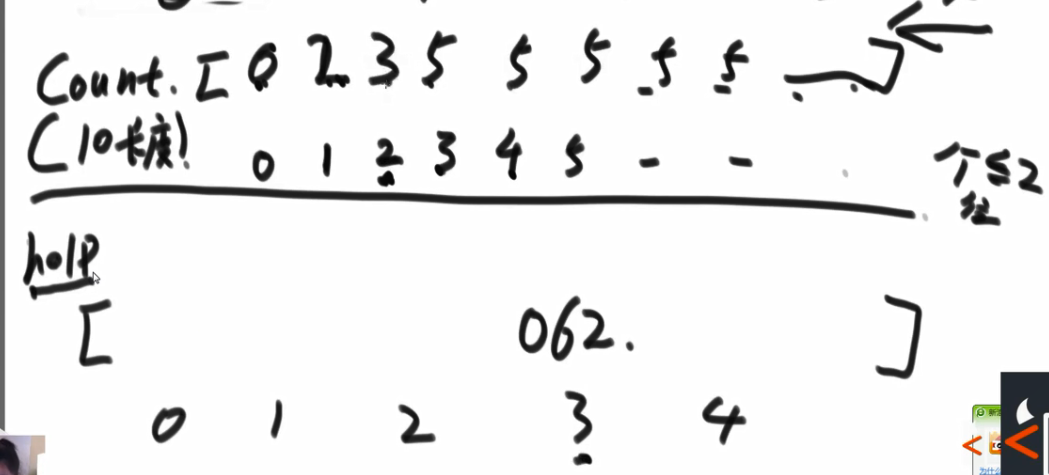 Count. [ 0 2 3 5 5 5 5 5 — ]
(10长度) 0 1 2 3 4 5 - -
个位≤2
help
[ 062. ]
0 1 2 3 4